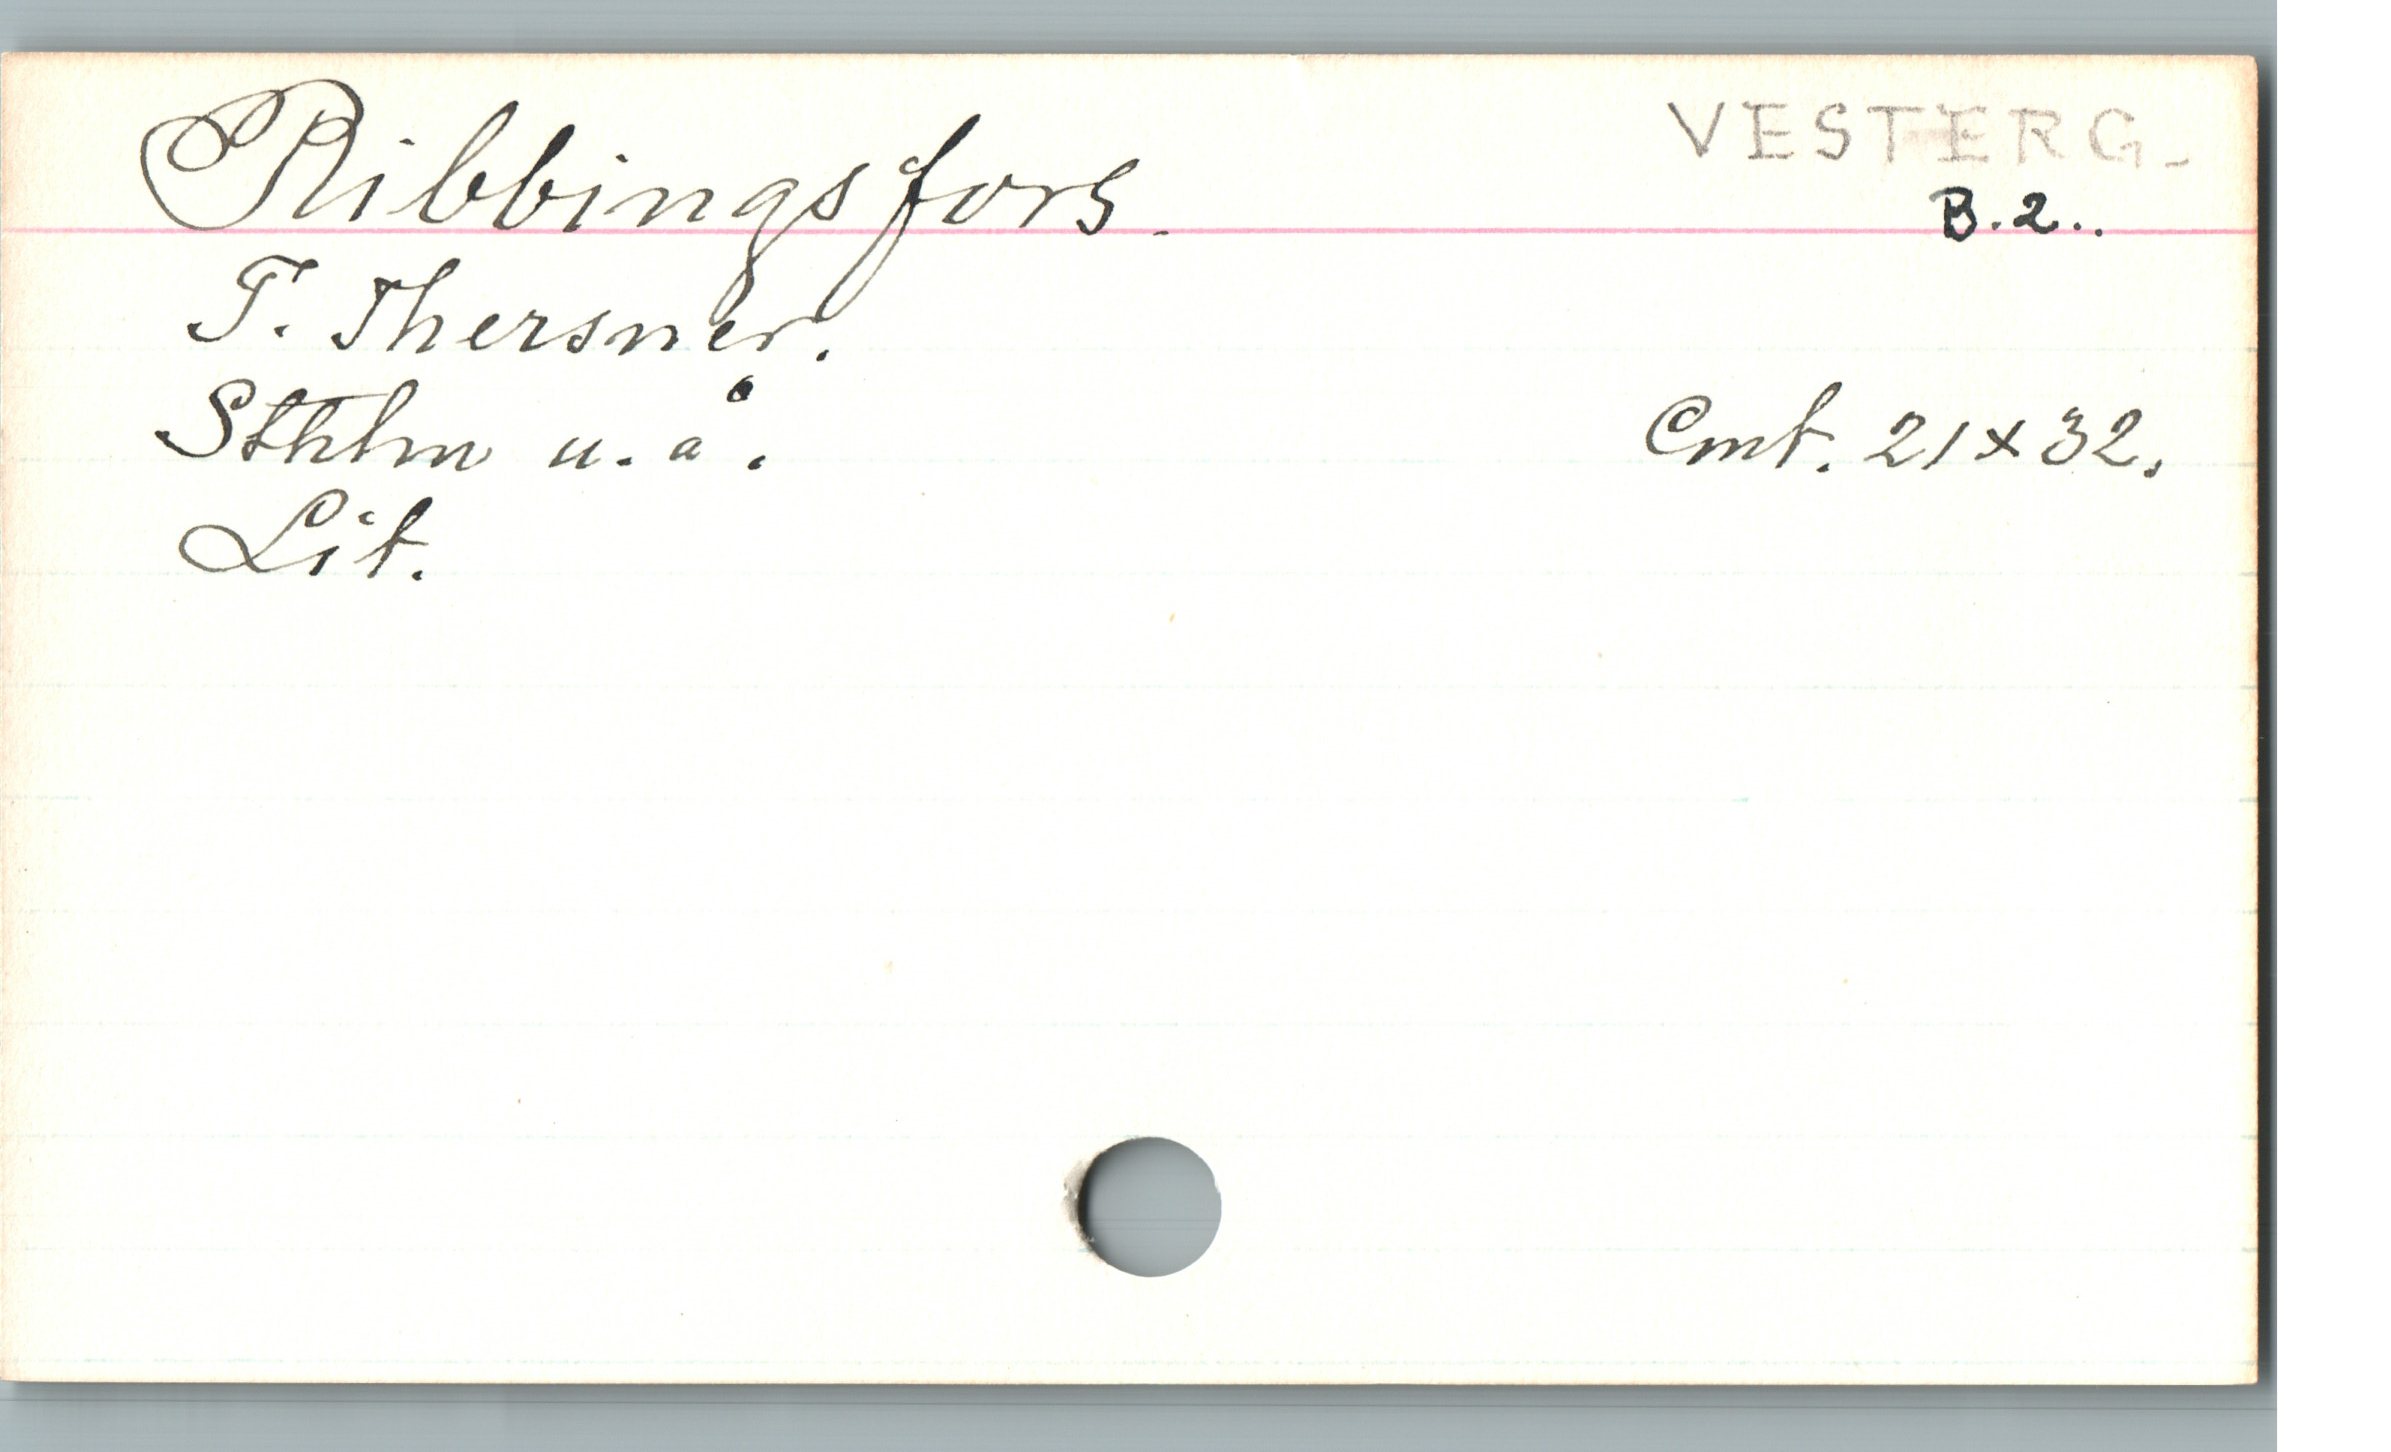 Ribbingsfors.
VESTERG.
B. 2..
T. Thersner.
Sthlm u. å.
Cmt. 21 x 32.
Lit.